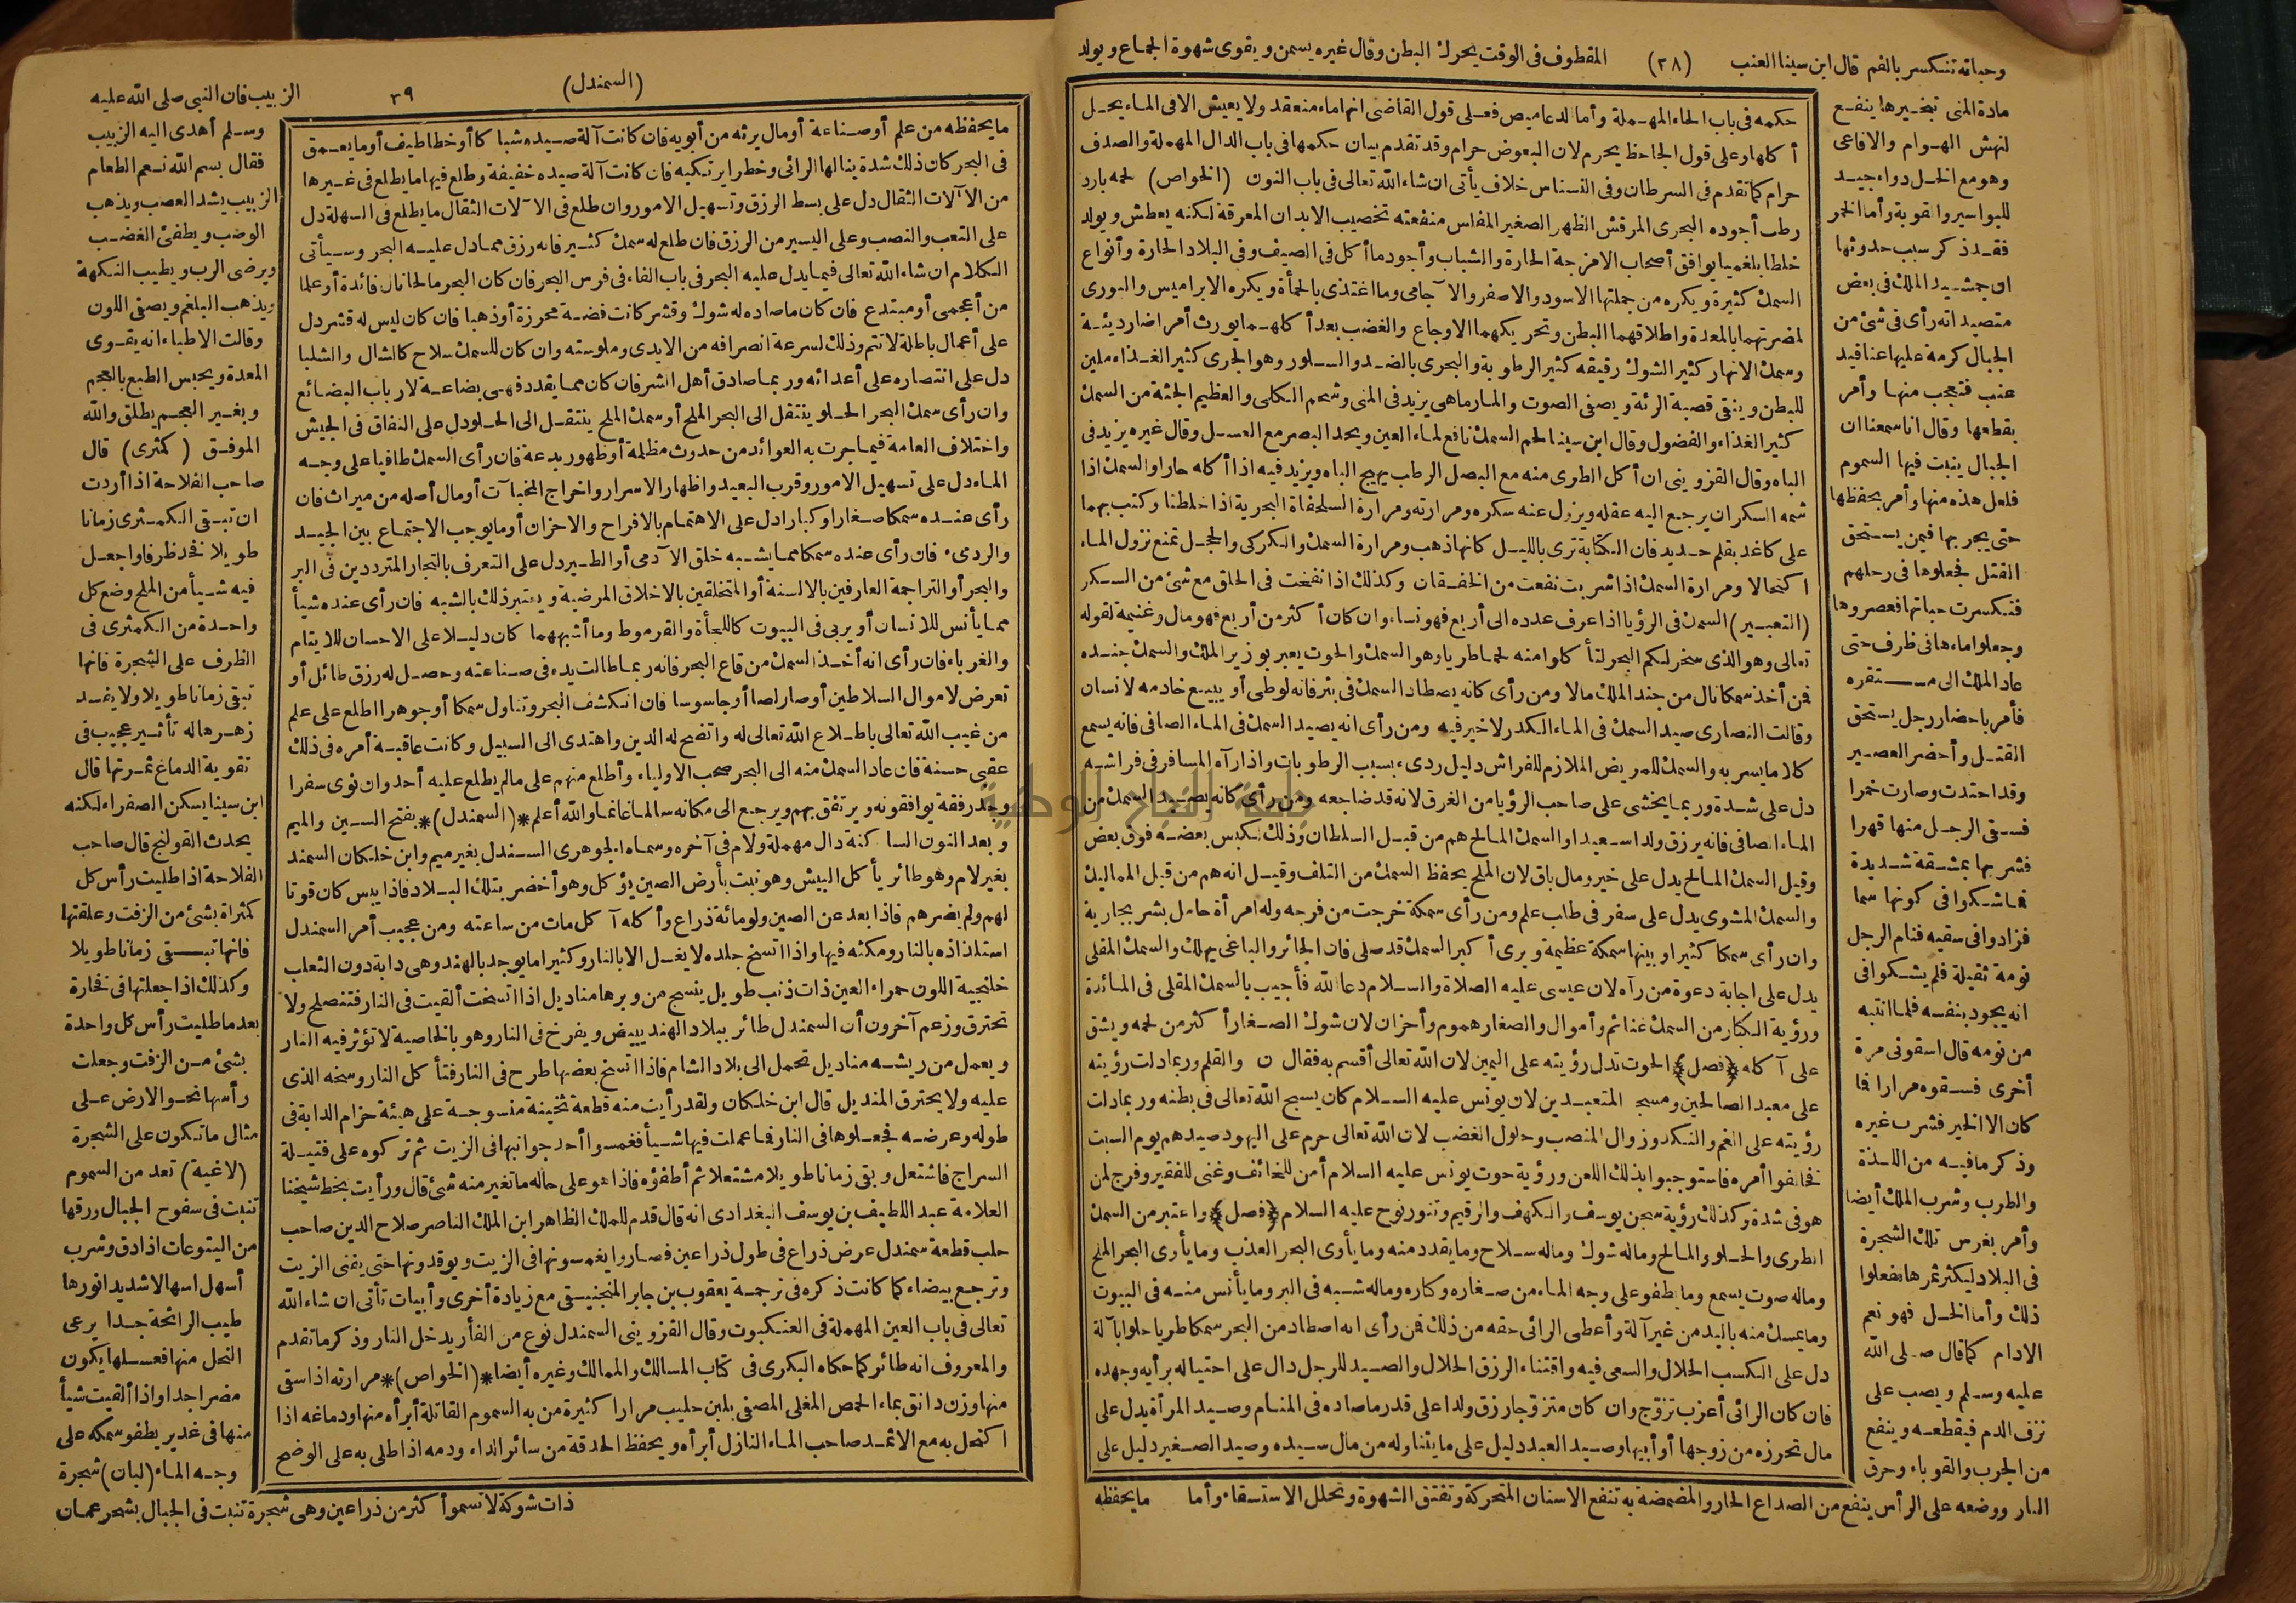 وحباته تنكسر بالفم قال ابن سينا العنب (٣٨) المقطوف فى الوقت يحرك البطن وقال غيره يسمن ويقوى شهوة الجماع ويولد
مادة المنى تبخيرها ينفع
لنهش الهوام والافاعى
وهو مع الخل دواء جيد
للبواسير والقوبة وأما الخمر
فقد ذكر سبب حدوثها
ان جمشيد الملك فى بعض
متصيداته رأى فى شئ من
الجبال كرمة عليها عناقيد
عنب فتعجب منها وأمر
بقطعها وقال انا سمعنا ان
الجبال ينبت فيها السموم
فلعل هذه منها وأمر بحفظها
حتى يجربها فيمن يستحق
القتل فجعلوها فى رحلهم
فتكسرت حباتها فعصروها
وجعلوا ماءها فى ظرف حتى
عاد الملك الى مستقره
فأمر باحضار رجل يستحق
القتل وأحضر العصير
وقد احتدت وصارت خمرا
فسقى الرجل منها قهرا
فشربها بمشقة شديدة
فما شكوا فى كونها سما
فزادوا فى سقيه فنام الرجل
نومة ثقيلة فلم يشكوا فى
انه يجود بنفسه فلما انتبه
من نومه قال اسقونى مرة
أخرى فسقوه مرارا فما
كان الا الخير فشرب غيره
وذكر ما فيه من اللذة
والطرب وشرب الملك أيضا
وأمر بغرس تلك الشجرة
فى البلاد ليكثر ثمرها ففعلوا
ذلك وأما الخل فهو نعم
الادام كما قال صلى الله
عليه وسلم ويصب على
نزف الدم فيقطعه وينفع
من الجرب والقوباء وحرق
النار ووضعه على الرأس ينفع من الصداع الحار والمضمضة به تنفع الاسنان المتحركة وتفتق الشهوة وتحلل الاستسقاء وأما
حكمه فى باب الحاء المهملة وأما الدعاميص فعلى قول القاضى انها ماء منعقد ولا يعيش الا فى الماء يحل
أكلها وعلى قول الجاحظ يحرم لان البعوض حرام وقد تقدم بيان حكمها فى باب الدال المهملة والصدف
حرام كما تقدم فى السرطان وفى النسناس خلاف يأتى ان شاء الله تعالى فى باب النون (الخواص) لحمه بارد
رطب أجوده البحرى المرقش الظهر الصغير المفلس منفعته تخصيب الابدان المعرقة لكنه يعطش ويولد
خلطا بلغميا يوافق أصحاب الامزجة الحارة والشباب وأجود ما أكل فى الصيف وفى البلاد الحارة وأنواع
السمك كثيرة ويكره من جملتها الاسود والاصفر والآجامى وما اغتذى بالحمأة ويكره الابراميس والبورى
لمضرتهما بالمعدة واطلاقهما البطن وتحريكهما الاوجاع والغضب بعد أكلهما يورث أمراضا رديئة
وسمك الانهار كثير الشوك رقيقه كثير الرطوبة والبحرى بالضد والسلور وهو الجرى كثير الغذاء ملين
للبطن وينقى قصبة الرئة ويصفى الصوت والمارماهى يزيد فى المنى وشحم الكلى والعظيم الجثة من السمك
كثير الغذاء والفضول وقال ابن سينا لحم السمك نافع لماء العين ويحد البصر مع العسل وقال غيره يزيد فى
الباه وقال القزوينى ان أكل الطرى منه مع البصل الرطب يهيج الباه ويزيد فيه اذا أكله حارا والسمك اذا
شمه السكران يرجع اليه عقله ويزول عنه سكره ومرارته ومرارة السلحفاة البحرية اذا خلطنا وكتب بهما
على كاغد بقلم حديد فان الكتابة ترى بالليل كأنها ذهب ومرارة السمك والكركى والحجل تمنع نزول الماء
اكتحالا ومرارة السمك اذا شربت نفعت من الخفقان وكذلك اذا نفخت فى الحلق مع شئ من السكر
(التعبير) السمك فى الرؤيا اذا عرف عدده الى أربع فهو نساء وان كان أكثر من أربع فهو مال وغنيمة لقوله
تعالى وهو الذى سخر لكم البحر لتأكلوا منه لحما طريا وهو السمك والحوت يعبر بوزير الملك والسمك جنده
فمن أخذ سمكا نال من جند الملك مالا ومن رأى كأنه يصطاد السمك فى بئر فانه لوطى أو يبيع خادمه لانسان
وقالت النصارى صيد السمك فى الماء الكدر لا خير فيه ومن رأى انه يصيد السمك فى الماء الصافى فانه يسمع
كلاما يسر به والسمك للمريض الملازم للفراش دليل ردىء بسبب الرطوبات واذا رآه المسافر فى فراشه
دل على شدة وربما يخشى على صاحب الرؤيا من الغرق لانه قد ضاجعه ومن رأى كأنه يصيد السمك من
الماء الصافى فانه يرزق ولدا سعيدا والسمك المالح هم من قبل السلطان وذلك لكبس بعضه فوق بعض
وقيل السمك المالح يدل على خير ومال باق لان الملح يحفظ السمك من التلف وقيل انه هم من قبل المماليك
والسمك المشوى يدل على سفر فى طلب علم ومن رأى سمكة خرجت من فرجه وله امرأة حامل بشر بجارية
وان رأى سمكا كثيرا وبينها سمكة عظيمة ويرى أكبر السمك قد صلى فان الجائر والباغى يهلك والسمك المقلى
يدل على اجابة دعوة من رآه لان عيسى عليه الصلاة والسلام دعا لله فأجيب بالسمك المقلى فى المائدة
ورؤية الكبار من السمك غنائم وأموال والصغار هموم وأحزان لان شوك الصغار أكثر من لحمه ويشق
على آكله (فصل) الحوت تدل رؤيته على اليمين لان الله تعالى أقسم به فقال ن والقلم وربما دلت رؤيته
على معبد الصالحين ومسجد المتعبدين لان يونس عليه السلام كان يسبح الله تعالى فى بطنه وربما دلت
رؤيته على الغم والنكد وزوال المنصب وحلول الغضب لان الله تعالى حرم على اليهود صيدهم يوم السبت
فخالفوا أمره فاستوجبوا بذلك اللعن ورؤية حوت يونس عليه السلام أمن للخائف وغنى للفقير وفرج لمن
هو فى شدة وكذلك رؤية سجن يوسف والكهف والرقيم وتنور نوح عليه السلام (فصل) واعتبر من السمك
الطرى والحلو والمالح وما له شوك وما له سلاح وما يقدد منه وما يأوى البحر العذب وما يأوى البحر الملح
وما له صوت يسمع وما يطفو على وجه الماء من صغاره وكباره وما له شبه فى البر وما يأنس منه فى البيوت
وما يمسك منه باليد من غير آلة وأعطى الرائى حقه من ذلك فمن رأى انه اصطاد من البحر سمكا طريا حلوا بآلة
دل على الكسب الحلال والسعى فيه واقتناء الرزق الحلال والصيد للرجل دال على احتياله برأيه وجهده
فان كان الرائى أعزب تزوج وان كان متزوجا رزق ولدا على قدر ما صاده فى المنام وصيد المرأة يدل على
مال تحرزه من زوجها أو أبيها وصيد العبد دليل على ما يتناوله من مال سيده وصيد الصغير دليل على
ما يحفظه
الزبيب فان النبى صلى الله عليه ٣٩ (السمندل)
وسلم أهدى اليه الزبيب
فقال بسم الله نعم الطعام
الزبيب يشد العصب ويذهب
الوصب ويطفئ الغضب
ويرضى الرب ويطيب النكهة
ويذهب البلغم ويصفى اللون
وقالت الاطباء انه يقوى
المعدة ويحبس الطبع بالعجم
وبغير العجم يطلق والله
الموفق (كمثرى) قال
صاحب الفلاحة اذا أردت
ان تبقى الكمثرى زمانا
طويلا فخذ ظرفا واجعل
فيه شيأ من الملح وضع كل
واحدة من الكمثرى فى
الظرف على الشجرة فانها
تبقى زمانا طويلا ولا يفسد
زهرها له تأثير عجيب فى
تقوية الدماغ ثمرتها قال
ابن سينا يسكن الصفراء لكنه
يحدث القولنج قال صاحب
الفلاحة اذا طليت رأس كل
كمثراة بشئ من الزفت وعلقتها
فانها تبقى زمانا طويلا
وكذلك اذا جعلتها فى فخارة
بعد ما طليت رأس كل واحدة
بشئ من الزفت وجعلت
رأسها نحو الارض على
مثال ما تكون على الشجرة
(لاغية) تعد من السموم
تنبت فى سفوح الجبال ورقها
من اليتوعات اذا دق وشرب
أسهل اسهالا شديدا نورها
طيب الرائحة جدا يرعى
النحل منها فعسلها يكون
مضرا جدا واذا ألقيت شيأ
منها فى غدير يطفو سمكه على
وجه الماء (لبان) شجرة
ذات شوكة لا تسمو أكثر من ذراعين وهى شجرة تنبت فى الجبال بشحر عمان
ما يحفظه من علم أو صناعة أو مال يرثه من أبويه فان كانت آلة صيده شباكا أو خطاطيف أو ما يعمق
فى البحر كان ذلك شدة ينالها الرائى وخطرا يرتكبه فان كانت آلة صيده خفيفة وطلع فيها ما يطلع فى غيرها
من الآلات الثقال دل على بسط الرزق وتسهيل الامور وان طلع فى الآلات الثقال ما يطلع فى السهلة دل
على التعب والنصب وعلى اليسير من الرزق فان طلع له سمك كثير فانه رزق مما دل عليه البحر وسيأتى
الكلام ان شاء الله تعالى فيما يدل عليه البحر فى باب الفاء فى فرس البحر فان كان البحر مالحا نال فائدة أو علما
من أعجمى أو مبتدع فان كان ما صاده له شوك وقشر كانت فضة محرزة أو ذهبا فان كان ليس له قشر دل
على أعمال باطلة لا تتم وذلك لسرعة انصرافه من الايدى وملوسته وان كان للسمك سلاح كالشال والشلبا
دل على انتصاره على أعدائه وربما صادق أهل الشر فان كان مما يقدد فهى بضاعة لارباب البضائع
وان رأى سمك البحر الحلو ينتقل الى البحر الملح أو سمك الملح ينتقل الى الحلو دل على النفاق فى الجيش
واختلاف العامة فيما جرت به العوائد من حدوث مظلمة أو ظهور بدعة فان رأى السمك طافيا على وجه
الماء دل على تسهيل الامور وقرب البعيد واظهار الاسرار واخراج المخبآت أو مال أصله من ميراث فان
رأى عنده سمكا صغارا وكبارا دل على الاهتمام بالافراح والاحزان أو ما يوجب الاجتماع بين الجيد
والردىء فان رأى عنده سمكا مما يشبه خلق الآدمى أو الطير دل على التعرف بالتجار المترددين فى البر
والبحر أو التراجمة العارفين بالالسنة أو المتخلقين بالاخلاق المرضية ويعتبر ذلك بالشبه فان رأى عنده شيأ
مما يأنس للانسان أو يربى فى البيوت كاللجأة والقرموط وما أشبههما كان دليلا على الاحسان للايتام
والغرباء فان رأى انه أخذ السمك من قاع البحر فانه ربما طالت يده فى صناعته وحصل له رزق طائل أو
تعرض لاموال السلاطين أو صار لصا أو جاسوسا فان انكشف البحر وتناول سمكا أو جوهرا اطلع على علم
من غيب الله تعالى باطلاع الله تعالى له واتضح له الدين واهتدى الى السبيل وكانت عاقبة أمره فى ذلك
عقبى حسنة فان عاد السمك منه الى البحر صحب الاولياء وأطلع منهم على ما لم يطلع عليه أحد وان نوى سفرا
وجد رفقة يوافقونه ويرتفق بهم ويرجع الى مكانه سالما غانما والله أعلم *(السمندل)* بفتح السين والميم
وبعد النون الساكنة دال مهملة ولام فى آخره وسماه الجوهرى السندل بغير ميم وابن خلكان السمند
بغير لام وهو طائر يأكل البيش وهو نبت بأرض الصين يؤكل وهو أخضر بتلك البلاد فاذا يبس كان قوتا
لهم ولم يضرهم فاذا بعد عن الصين ولو مائة ذراع وأكله آكل مات من ساعته ومن عجيب أمر السمندل
استلذاذه بالنار ومكثه فيها واذا اتسخ جلده لا يغسل الا بالنار وكثيرا ما يوجد بالهند وهى دابة دون الثعلب
خلنجية اللون حمراء العين ذات ذنب طويل ينسج من وبرها مناديل اذا اتسخت ألقيت فى النار فتنصلح ولا
تحترق وزعم آخرون أن السمندل طائر ببلاد الهند يبيض ويفرخ فى النار وهو بالخاصية لا تؤثر فيه النار
ويعمل من ريشه مناديل تحمل الى بلاد الشام فاذا اتسخ بعضها طرح فى النار فتأكل النار وسخه الذى
عليه ولا يحترق المنديل قال ابن خلكان ولقد رأيت منه قطعة ثخينة منسوجة على هيئة حزام الدابة فى
طوله وعرضه فجعلوها فى النار فما عملت فيها شيأ فغمسوا أحد جوانبها فى الزيت ثم تركوه على فتيلة
السراج فاشتعل وبقى زمانا طويلا مشتعلا ثم أطفؤه فاذا هو على حاله ما تغير منه شئ قال ورأيت بخط شيخنا
العلامة عبد اللطيف بن يوسف البغدادى انه قال قدم للملك الظاهر ابن الملك الناصر صلاح الدين صاحب
حلب قطعة سمندل عرض ذراع فى طول ذراعين فصاروا يغمسونها فى الزيت ويوقدونها حتى يفنى الزيت
وترجع بيضاء كما كانت ذكره فى ترجمة يعقوب بن جابر المنجنيقى مع زيادة أخرى وأبيات تأتى ان شاء الله
تعالى فى باب العين المهملة فى العنكبوت وقال القزوينى السمندل نوع من الفأر يدخل النار وذكر ما تقدم
والمعروف انه طائر كما حكاه البكرى فى كتاب المسالك والممالك وغيره أيضا *(الخواص)* مرارته اذا سقى
منها وزن دانق بماء الحمص المغلى المصفى بلبن حليب مرارا كثيرة من به السموم القاتلة أبرأه منها ودماغه اذا
اكتحل به مع الاثمد صاحب الماء النازل أبرأه ويحفظ الحدقة من سائر الداء ودمه اذا طلى به على الوضح